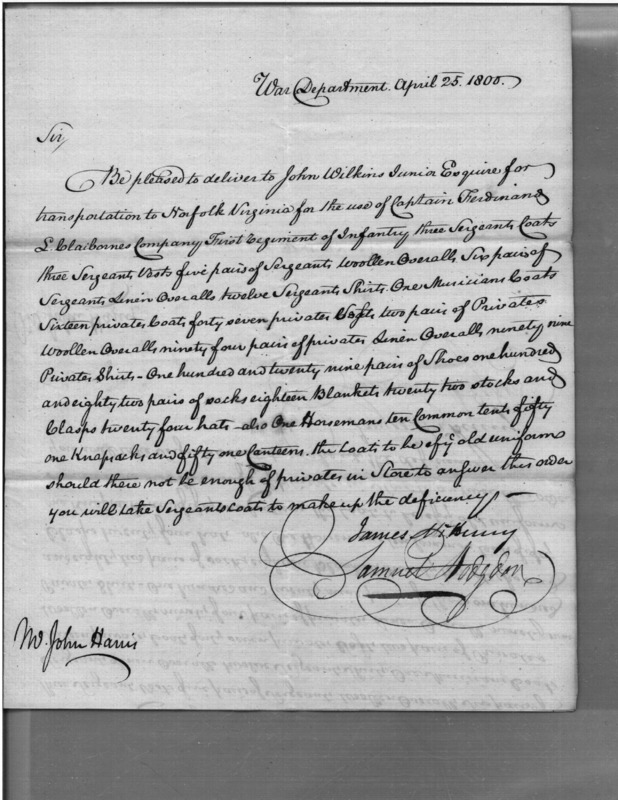 War Department April 25. 1800.
Sir,
Be pleased to deliver to John Wilkins Junior Esquire for
transportation to Norfolk Virginia for the use of Captain Ferdinand
L. Claibornes Company First Regiment of Infantry three Sergeants Coats
three Sergeants Vests five pairs of Sergeants Woollen Overalls Six pairs of
Sergeants Linen Overalls twelve Sergeants Shirts. One Musicians Coats
Sixteen privates Coats forty seven privates Vests two pairs of Privates
Woollen Overalls ninety four pairs of privates Linen Overalls ninety nine
Privates Shirts - One hundred and twenty nine pairs of Shoes one hundred
and eighty two pairs of socks eighteen Blankets twenty two stocks and
Clasps twenty four hats - also One Horsemans ten Common tents fifty
one Knapsacks and fifty one Canteens. the Coats to be of ye. old uniform
should there not be enough of privates in Store to answer this order
you will take Sergeants Coats to make up the deficiency -
James McHenry
Samuel Hodgdon
Mr. John Harris